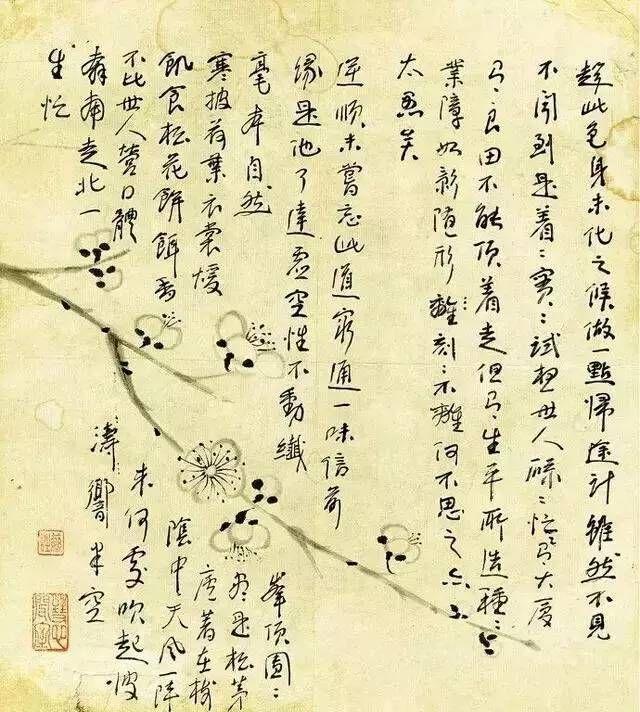 趁此色身未化之候做一點歸途計雖然不見
不聞到是着〻實〻試想世人碌〻忙〻為大廈
為良田不能頂着走但為生平所造種〻之
業障如影隨形離刻〻不離何不思之亦
太愚矣
逆順未嘗忘此道窮通一味信前
緣是他了達虛空性不動纖
毫本自然
寒披荷葉衣裳煖
飢食松花餅餌香
不比世人營口體
奔南走北一
生忙
峯頂團〻
盡是松茅
庵著在樹
陰中天風一陣
来何處吹起波
濤響半空